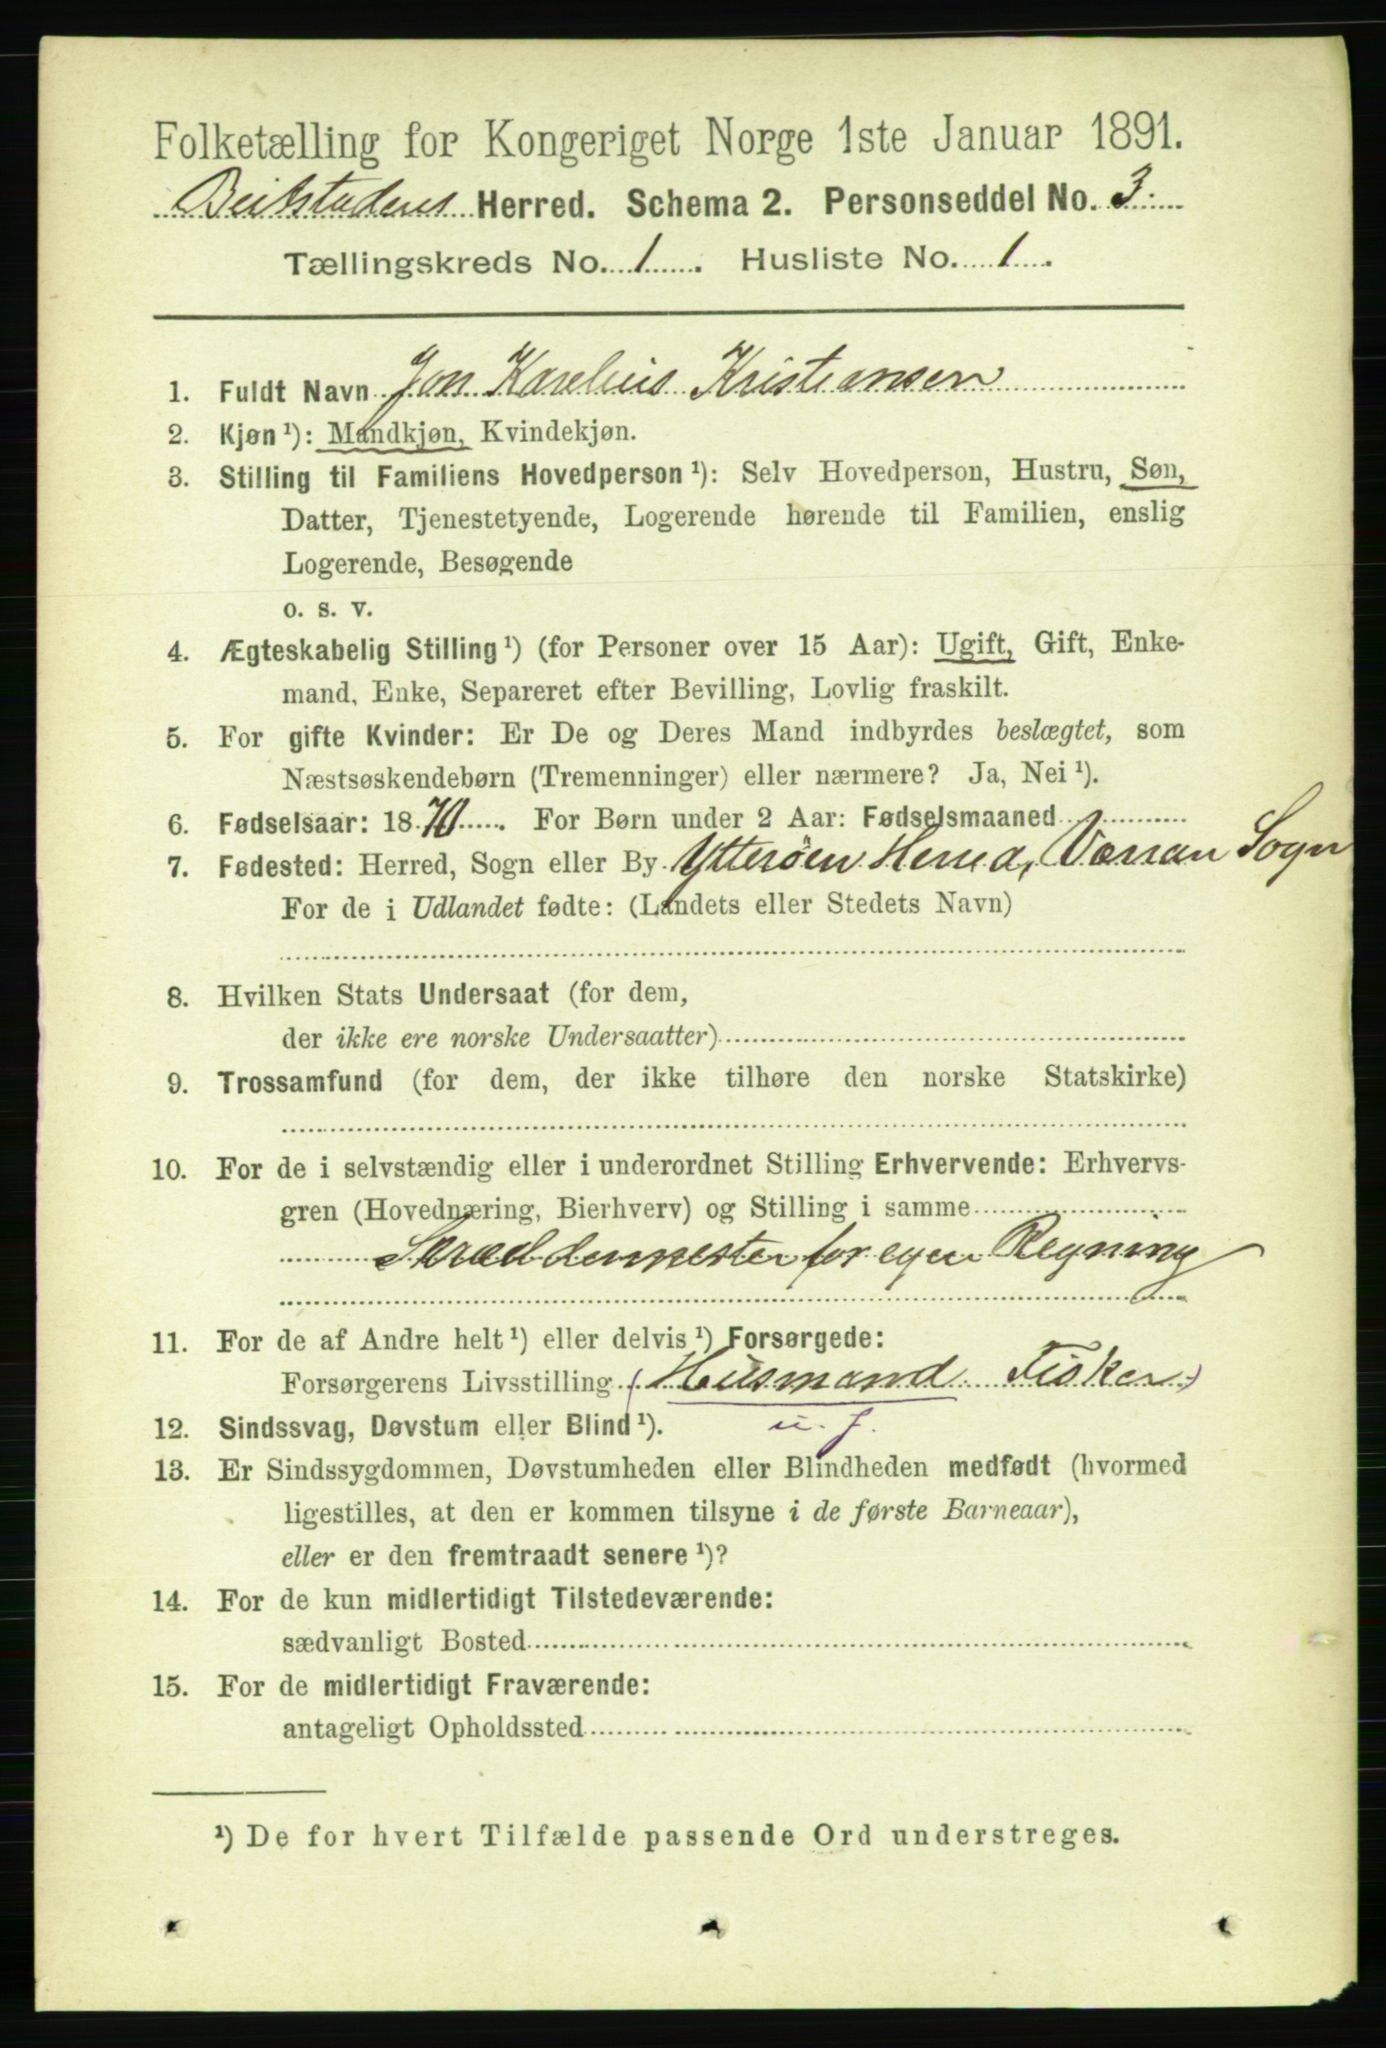 Folketælling for Kongeriget Norge 1ste Januar 1891.
Beitstadens Herred. Schema 2. Personseddel No. 3.
Tællingskreds No. 1. Husliste No. 1.
1. Fuldt Navn Jon Karelius Kristiansen
2. Kjøn ¹): Mandkjøn, Kvindekjøn.
3. Stilling til Familiens Hovedperson ¹): Selv Hovedperson, Hustru, Søn,
Datter, Tjenestetyende, Logerende hørende til Familien, enslig
Logerende, Besøgende
o. s. v.
4. Ægteskabelig Stilling ¹) (for Personer over 15 Aar): Ugift, Gift, Enke-
mand, Enke, Separeret efter Bevilling, Lovlig fraskilt.
5. For gifte Kvinder: Er De og Deres Mand indbyrdes beslægtet, som
Næstsøskendebørn (Tremenninger) eller nærmere? Ja, Nei ¹).
6. Fødselsaar: 1870. For Børn under 2 Aar: Fødselsmaaned
7. Fødested: Herred, Sogn eller By Ytterøen Herred, Værran Sogn
For de i Udlandet fødte: (Landets eller Stedets Navn)
8. Hvilken Stats Undersaat (for dem,
der ikke ere norske Undersaatter)
9. Trossamfund (for dem, der ikke tilhøre den norske Statskirke)
10. For de i selvstændig eller i underordnet Stilling Erhvervende: Erhvervs-
gren (Hovednæring, Bierhverv) og Stilling i samme
Skræddermester for egen Regning
11. For de af Andre helt ¹) eller delvis ¹) Forsørgede:
Forsørgerens Livsstilling (Husmand Fisker)
u. j.
12. Sindssvag, Døvstum eller Blind ¹).
13. Er Sindssygdommen, Døvstumheden eller Blindheden medfødt (hvormed
ligestilles, at den er kommen tilsyne i de første Barneaar),
eller er den fremtraadt senere ¹)?
14. For de kun midlertidigt Tilstedeværende:
sædvanligt Bosted
15. For de midlertidigt Fraværende:
antageligt Opholdssted
¹) De for hvert Tilfælde passende Ord understreges.